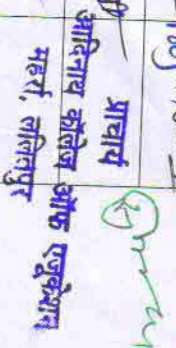 प्राचार्य
आदिनाथ कॉलेज ऑफ एजूकेशन
महर्रा, ललितपुर